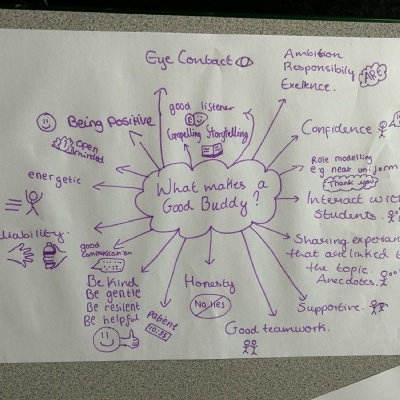 Eye Contact
Ambition
Responsibility
Exellence.
ARE
good listener
Compelling Storytelling
Being Positive
Open minded
Confidence
Role modelling
e.g neat uniform
Thank you!
energetic
What makes a
Good Buddy?
Interact with
Students.
Sharing
that are linked
the topic.
Anecdotes.
good
Be Kind
Be gentle
Be resilent
Be helpful
Patient
Honesty
No lies
Supportive.
Good teamwork.